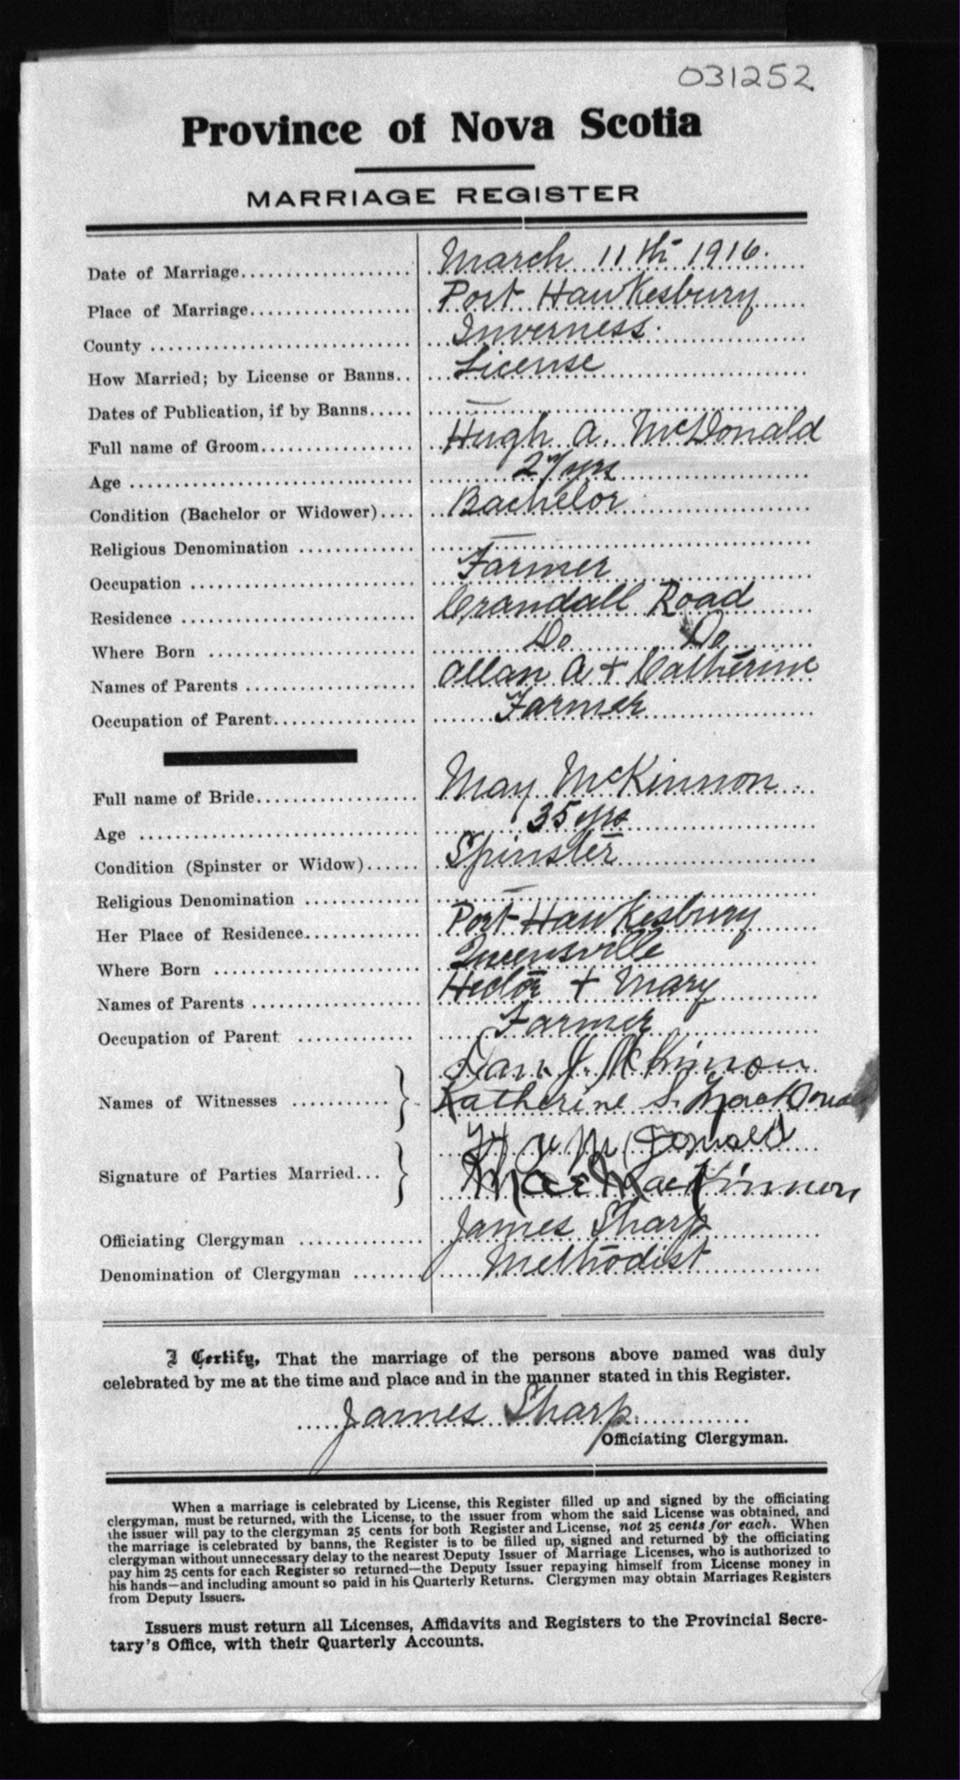 031252
Province of Nova Scotia
MARRIAGE REGISTER
Date of Marriage.................... March 11th 1916.
Place of Marriage................... Port Hawkesbury
County ............................. Inverness.
How Married; by License or Banns.. License
Dates of Publication, if by Banns..... —
Full name of Groom................. Hugh A. McDonald
Age ................................ 27 yrs
Condition (Bachelor or Widower).... Bachelor
Religious Denomination ............. —
Occupation ......................... Farmer
Residence .......................... Crandall Road
Where Born ....................... Do Do
Names of Parents ................... Allan A + Catherine
Occupation of Parent................ Farmer
Full name of Bride.................. May McKinnon
Age ............................... 35 yrs
Condition (Spinster or Widow)...... Spinster
Religious Denomination ............. —
Her Place of Residence............. Port Hawkesbury
Where Born ....................... Queensville
Names of Parents ................... Hector + Mary
Occupation of Parent ............. Farmer
Dan. J. McKinnon
Names of Witnesses ........... } Katherine S. MacDonald
H A McDonald
Signature of Parties Married... } Mae MacKinnon
Officiating Clergyman ............. James Sharp
Denomination of Clergyman ........ Methodist
I Certify, That the marriage of the persons above named was duly
celebrated by me at the time and place and in the manner stated in this Register.
James Sharp
Officiating Clergyman.
When a marriage is celebrated by License, this Register filled up and signed by the officiating
clergyman, must be returned, with the License, to the issuer from whom the said License was obtained, and
the issuer will pay to the clergyman 25 cents for both Register and License, not 25 cents for each. When
the marriage is celebrated by banns, the Register is to be filled up, signed and returned by the officiating
clergyman without unnecessary delay to the nearest Deputy Issuer of Marriage Licenses, who is authorized to
pay him 25 cents for each Register so returned—the Deputy Issuer repaying himself from License money in
his hands—and including amount so paid in his Quarterly Returns. Clergymen may obtain Marriages Registers
from Deputy Issuers.
Issuers must return all Licenses, Affidavits and Registers to the Provincial Secre-
tary's Office, with their Quarterly Accounts.